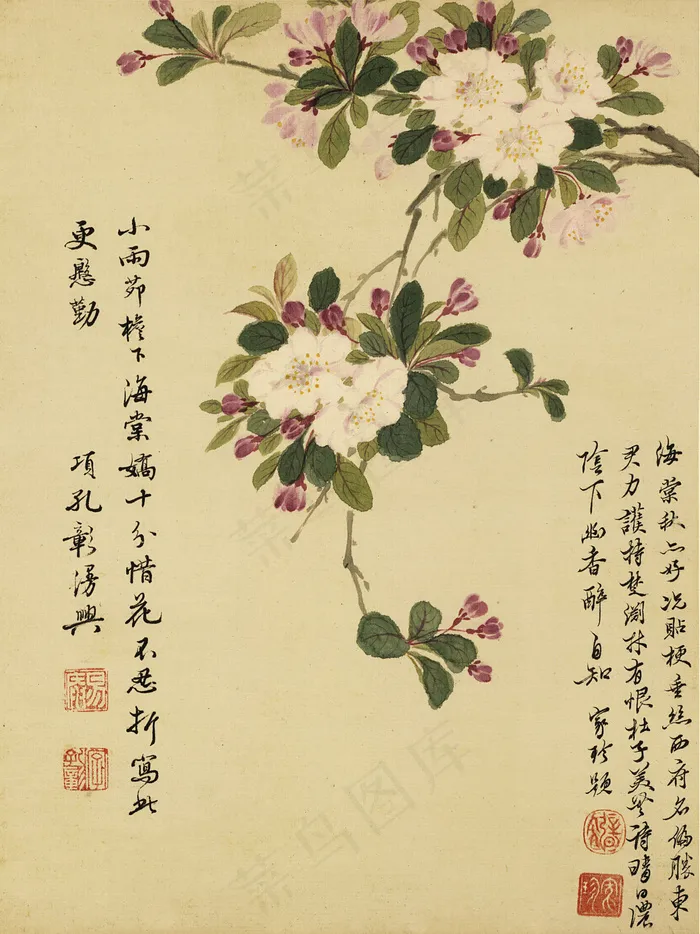 海棠秋亦好况貼梗垂絲西府名偏勝東
君力護持淵材有恨杜子美無詩晴日濃
陰下幽香醉自知 家珍題
小雨茆檐下海棠嬌十分惜花不忍折寫此
更慇勤 項孔彰漫興
菜鸟图库